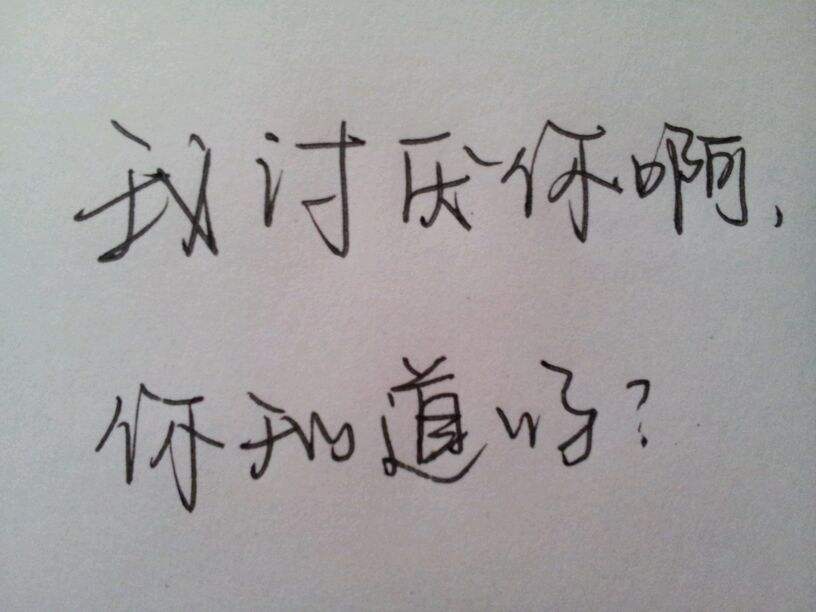 我讨厌你啊，
你知道吗？